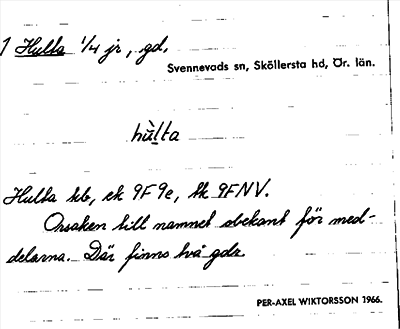 1 Hulta 1/4 jr, gd.
Svennevads sn, Sköllersta hd, Ör. län.
hùlta
Hulta kb, ek 9F9e, tk 9FNV.
Orsaken till namnet obekant för med-
delarna. Där finns två gdr.
PER-AXEL WIKTORSSON 1966.